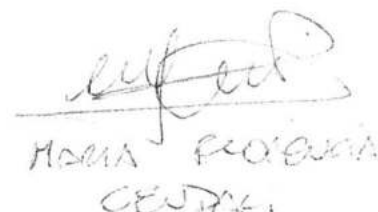 MARIA FLORENCIA
CENDALI